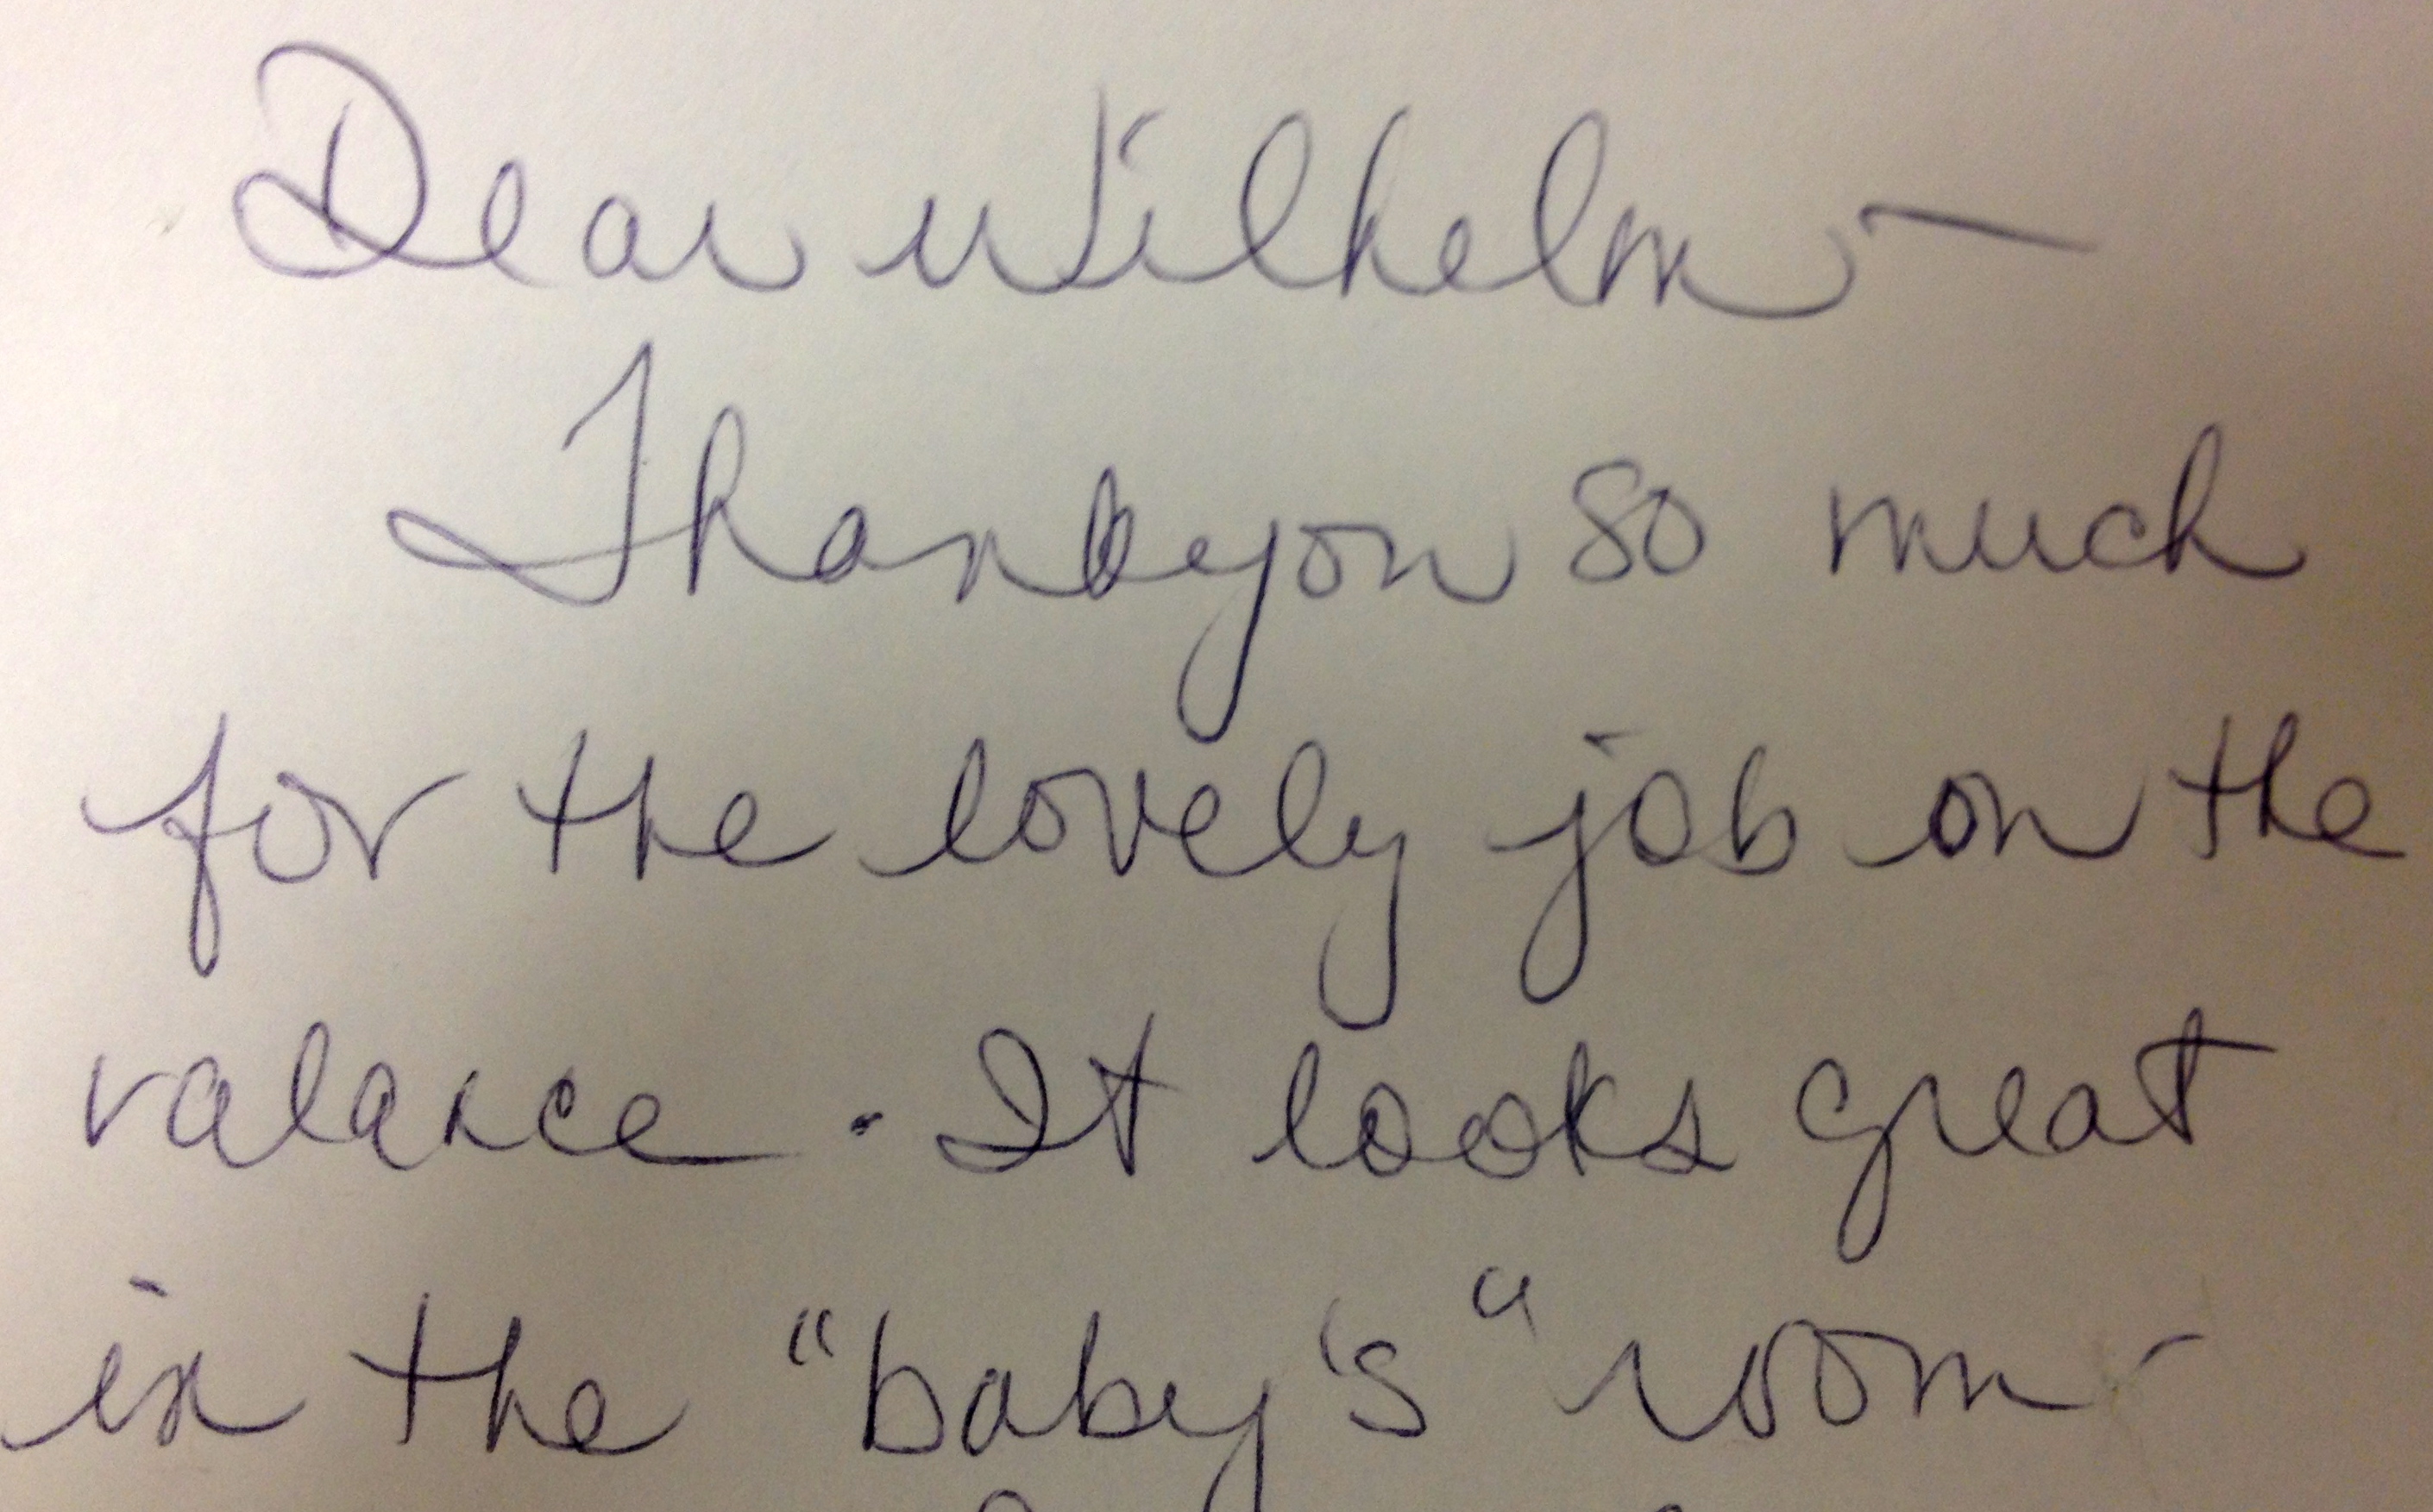 Dear Wilhelm —
Thank you so much
for the lovely job on the
valance. It looks great
in the "baby's" room -